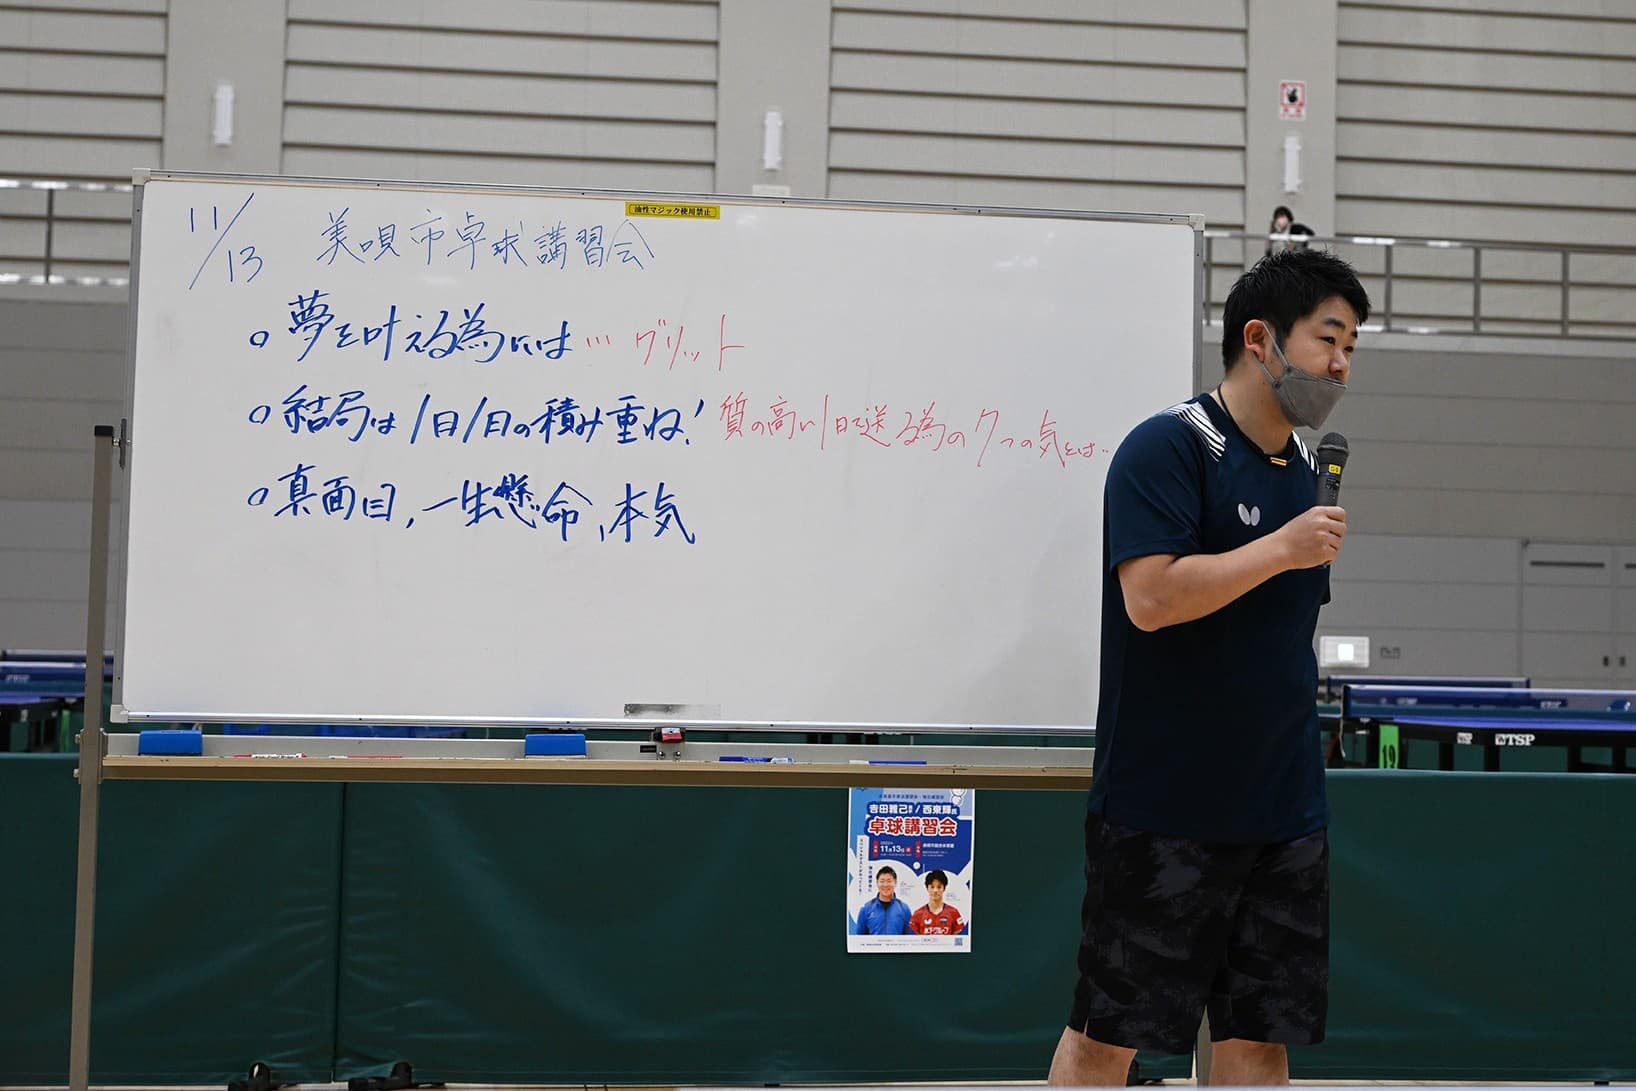 油性マジック使用禁止
11/13 美唄市卓球講習会
○夢を叶える為には…グリット
○結局は1日1日の積み重ね!質の高い1日を送る為の7つの気とは…
○真面目,一生懸命,本気
TSP
19
吉田雅己 / 西東輝
卓球講習会
11月13日